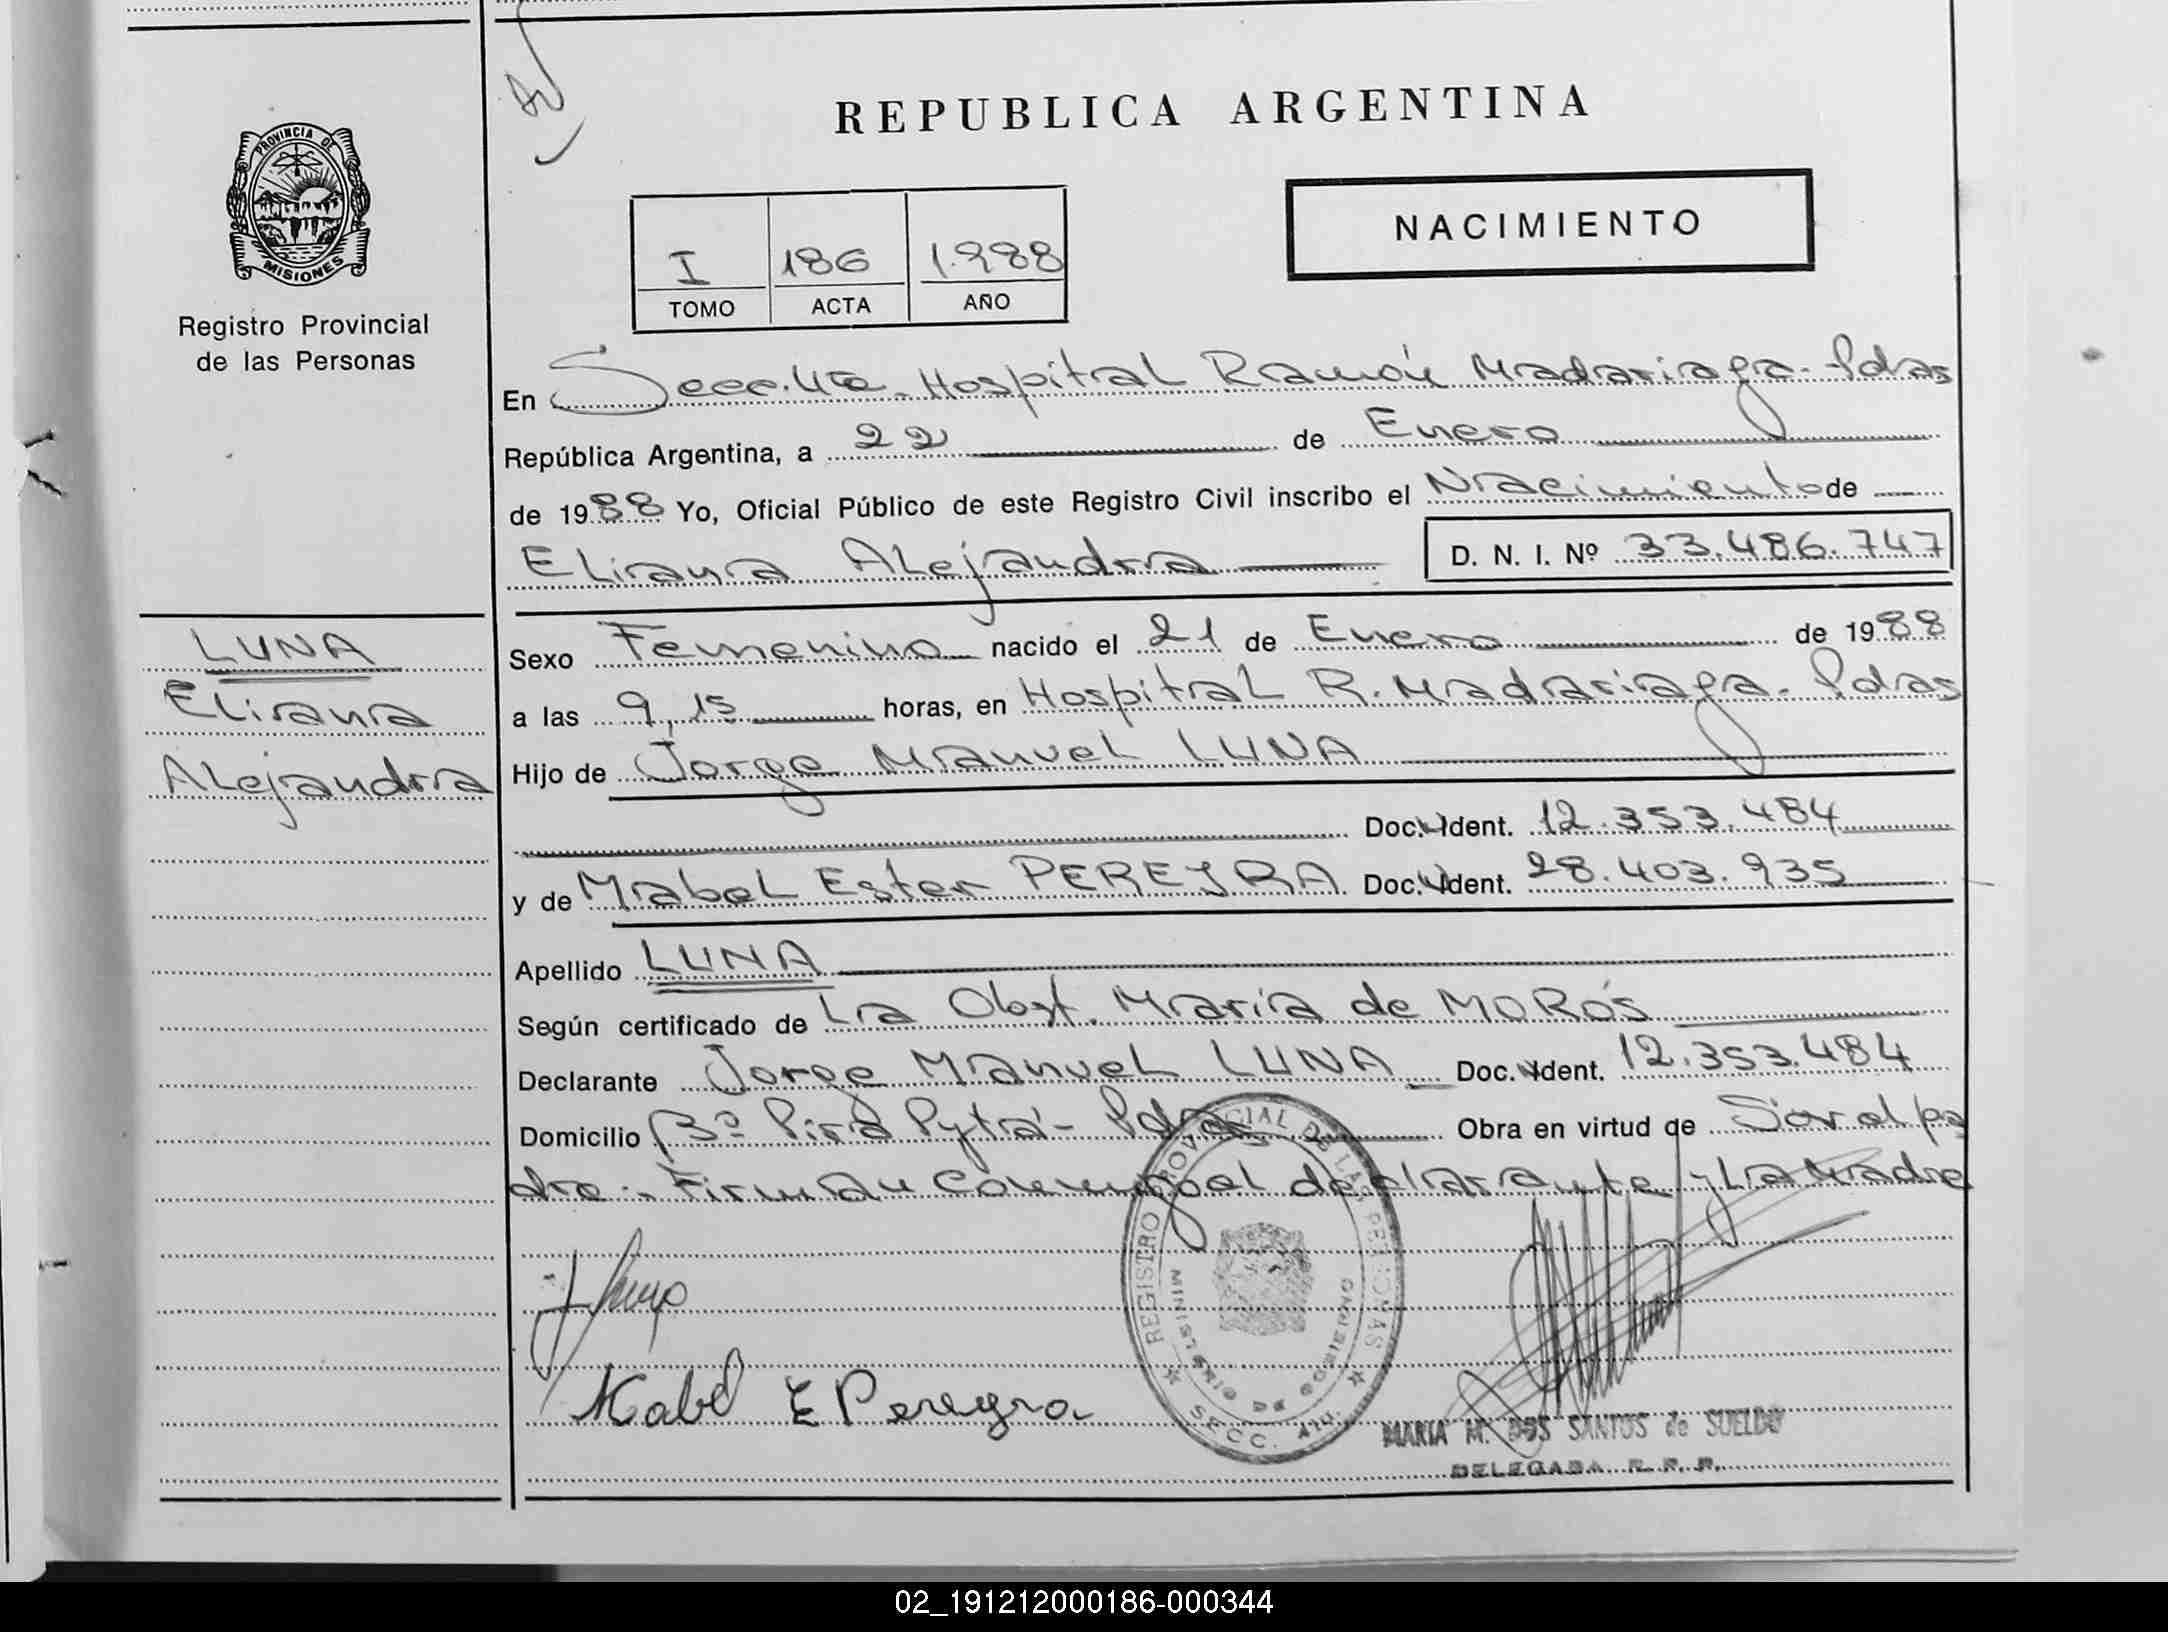 REPUBLICA ARGENTINA
PROVINCIA DE
MISIONES
Registro Provincial
de las Personas
NACIMIENTO
I 186 1.988
TOMO ACTA AÑO
En Secc. 4ta. Hospital Ramón Madariaga - Pdas
República Argentina, a 22 de Enero
de 1988 Yo, Oficial Público de este Registro Civil inscribo el Nacimiento de
Eliana Alejandra D. N. I. Nº 33.486.747
LUNA
Eliana
Alejandra
Sexo Femenino nacido el 21 de Enero de 1988
a las 9,15 horas, en Hospital R. Madariaga - Pdas
Hijo de Jorge Manuel LUNA
Doc. Ident. 12.353.484
y de Mabel Ester PEREYRA Doc. Ident. 28.403.935
Apellido LUNA
Según certificado de La Obst. María de MOROS
Declarante Jorge Manuel LUNA Doc. Ident. 12.353.484
Domicilio Bº Pirá Pytá - Pdas Obra en virtud de Ser el pa
dre. Firman conmigo el declarante y La Madre
Mabel E Pereyra
REGISTRO PROVINCIAL DE LAS PERSONAS
MINISTERIO DE GOBIERNO
SECC. 4TA.
MARIA M. DOS SANTOS de SUELDO
DELEGADA R. P. P.
02_191212000186-000344